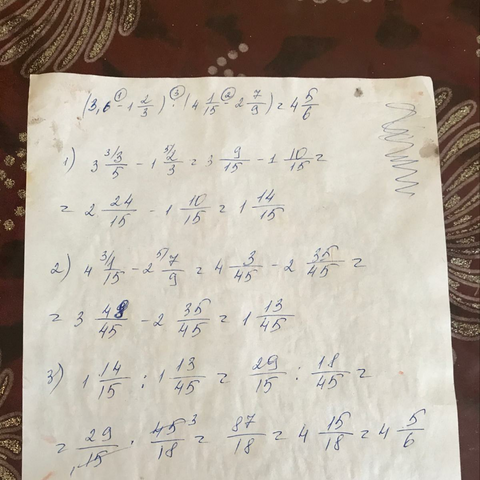 (3,6 ①- 1 2/3) ③: (4 1/15 ②- 2 7/9) = 4 5/6
1) 3 ³⁾3/5 - 1 ⁵⁾2/3 = 3 9/15 - 1 10/15 =
= 2 24/15 - 1 10/15 = 1 14/15
2) 4 ³⁾1/15 - 2 ⁵⁾7/9 = 4 3/45 - 2 35/45 =
= 3 48/45 - 2 35/45 = 1 13/45
3) 1 14/15 : 1 13/45 = 29/15 : 18/45 =
= 29/15 · 45³/18 = 87/18 = 4 15/18 = 4 5/6